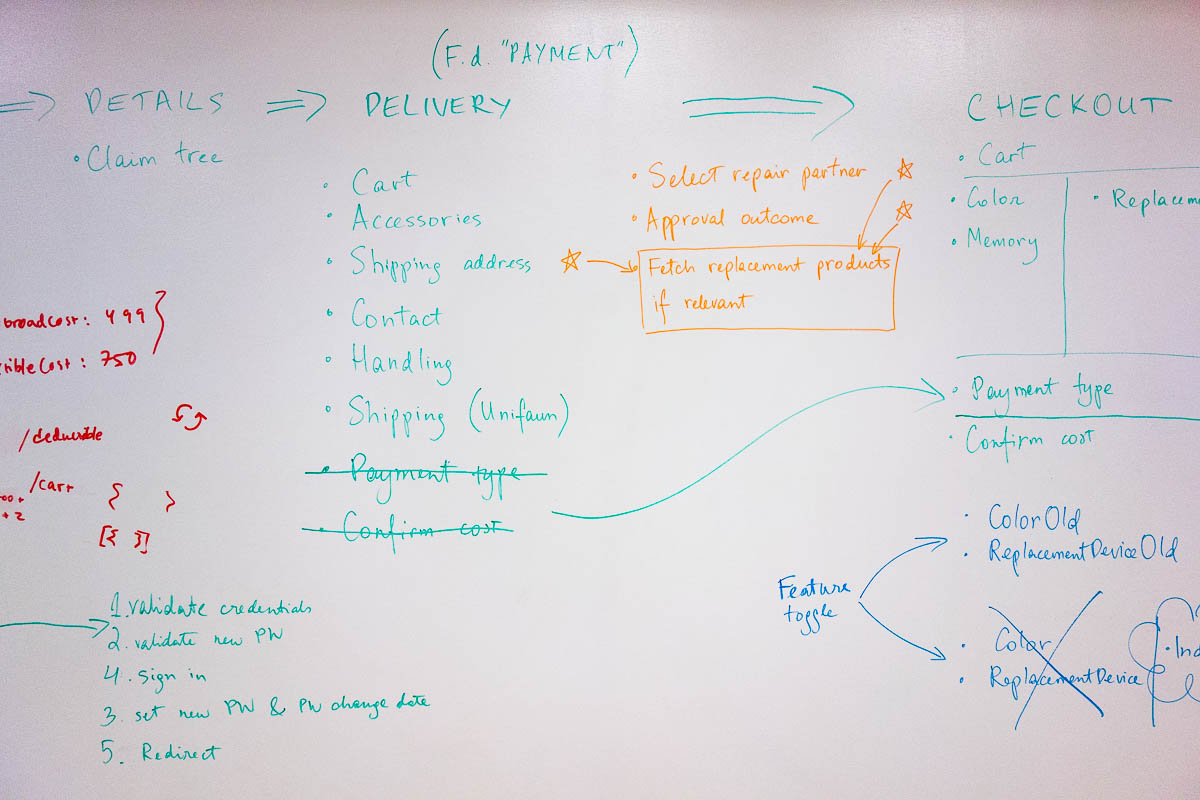 (F.d. "PAYMENT")
DETAILS
• Claim tree
DELIVERY
• Cart
• Accessories
• Shipping address
• Contact
• Handling
• Shipping (Unifaun)
• Payment type
• Confirm cost
• Select repair partner
• Approval outcome
• Fetch replacement products
if relevant
CHECKOUT
• Cart
• Color
• Memory
• Replacem
• Payment type
• Confirm cost
broadCost: 499
ribleCost: 750
/deductible
/cart
+2
{ }
[{ }]
1. validate credentials
2. validate new PW
4. sign in
3. set new PW & PW change date
5. Redirect
Feature
toggle
• ColorOld
• ReplacementDeviceOld
• Color
• ReplacementDevice
• Ind